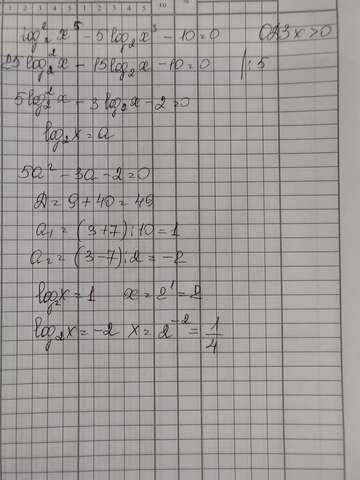 log₂² x⁵ - 5 log₂ x³ - 10 = 0 ОДЗ x > 0
25 log₂² x - 15 log₂ x - 10 = 0 /:5
5 log₂² x - 3 log₂ x - 2 = 0
log₂ x = a
5a² - 3a - 2 = 0
Д = 9 + 40 = 49
a₁ = (3+7):10 = 1
a₂ = (3-7):2 = -2
log₂ x = 1 x = 2¹ = 2
log₂ x = -2 x = 2⁻² = 1/4